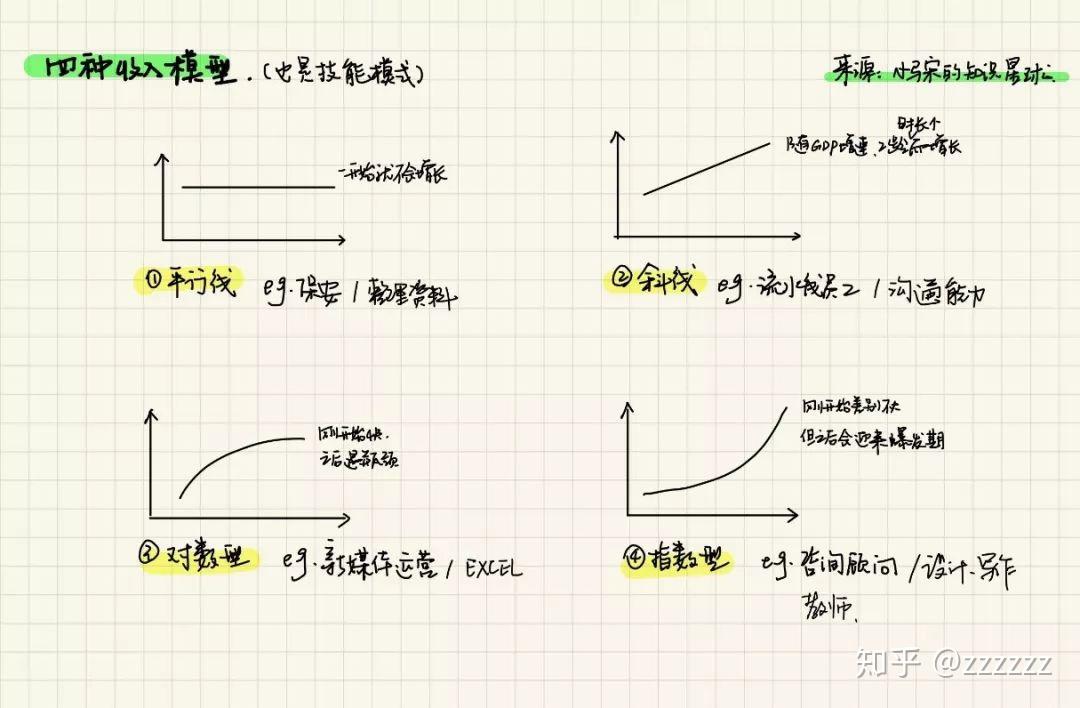 四种收入模型.(也是技能模式)
来源:小马宋的知识星球
一开始就不会增长
时长个
随GDP增速、工龄而增长
①平行线 eg.保安/整理资料
②斜线 eg.流水线员工/沟通能力
刚开始快.
之后遇瓶颈
刚开始差别不大
但之后会迎来爆发期
③对数型 eg.新媒体运营/EXCEL
④指数型 eg.咨询顾问/设计.写作
教师.
知乎 @zzzzzz